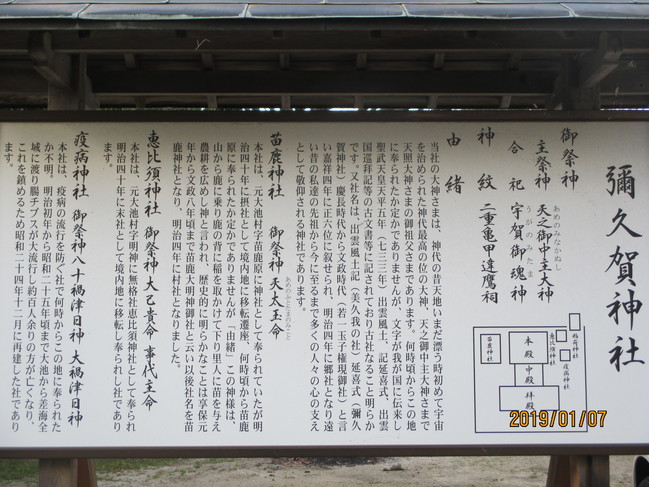 彌久賀神社
御祭神
主祭神 天之御中主大神
あめのみなかぬし
合祀 宇賀御魂神
うがのみたま
神紋 二重亀甲違鷹祠
由緒
当社の大神さまは、神代の昔天地いまだ漂う時初めて宇宙
を治められた神代最高の位の大神、天之御中主大神さまで
天照大神さまの御祖父さまであります。何時頃からこの地
に奉られたか定かでありませんが、文字が我が国に伝来し
聖武天皇天平五年(七三三年)出雲風土、記延喜式、出雲
国巡拜記等の古文書等に記されており古社なること明らか
です。又社名は、出雲風土記(美久我の社)延喜式(彌久
賀神社)慶長時代から文政時代(若一玉子権現御社)と言
い嘉祥四年に正六位に叙せられ、明治四年に郷社となり遠
い昔の私達の先祖から今に至るまで多くの人々の心の支え
として敬仰される神社であります。
苗鹿神社 御祭神 天太玉命
あめのふとだまのみこと
本社は、元大池村字苗鹿原に神社として奉られていたが明
治四十年に摂社として境内地に移転遷座、何時頃から苗鹿
原に奉られたか定かでありませんが「由緒」この神様は、
山から鹿に乗り鹿の背に稲を取かけて下り里人に苗を与え
農耕を広めし神と言われ、歴史的に明らかなことは享保元
年から文政八年頃まで苗鹿大明神御社と云い以後社名を苗
鹿神社となり、明治四年に村社となりました。
恵比須神社 御祭神 大己貴命 事代主命
本社は、元大池村字明神に無格社恵比須神社として奉られ
明治四十年に末社として境内地に移転し奉られし社であり
ます。
疫病神社 御祭神八十禍津日神 大禍津日神
本社は、疫病の流行を防ぐ社で何時からこの地に奉られた
か不明。明治初年から昭和二十五年頃まで大池から差海全
域に渡り腸チブスが大流行し約百人余りの方が亡くなり、
これを鎮めるため昭和二十四年十二月に再建した社であり
ます。
稲荷神社
恵比須神社
疫病神社
苗鹿神社
本殿
中殿
拝殿
2019/01/07